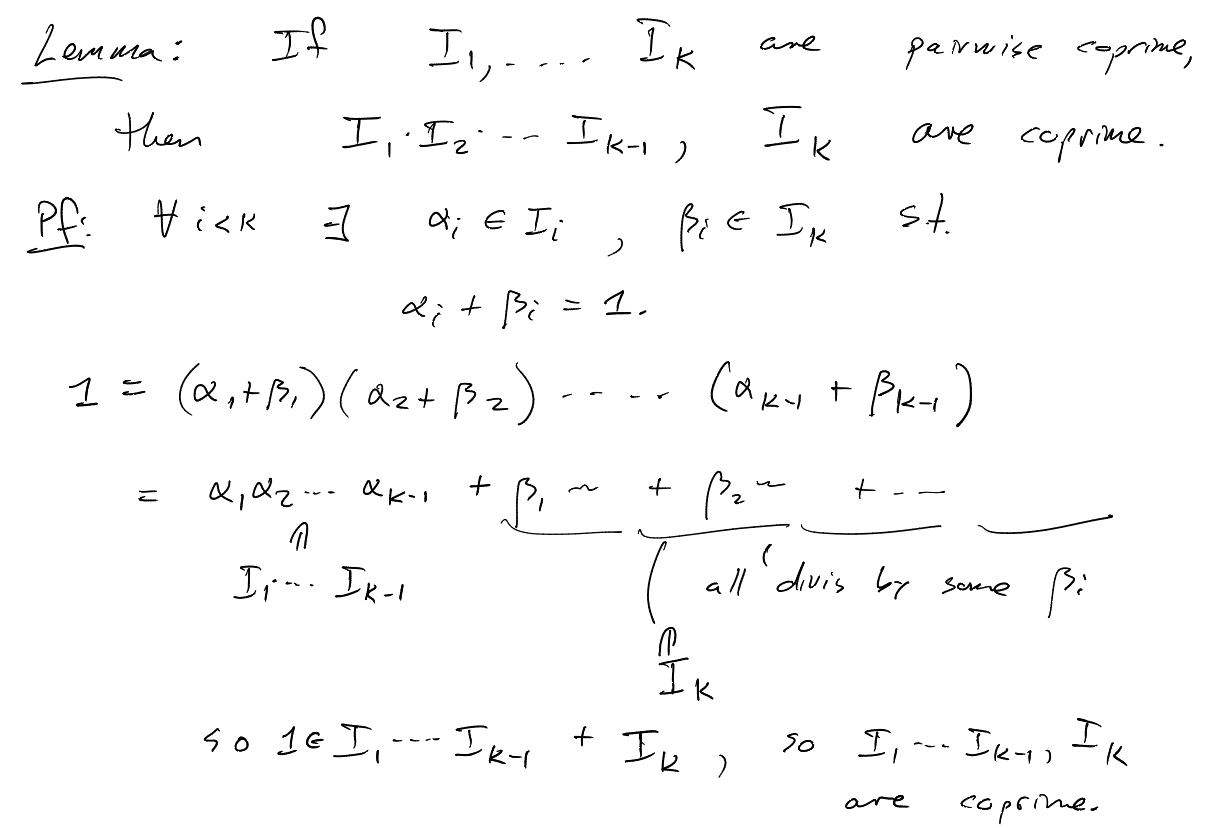 Lemma: If I₁, .... I_K are pairwise coprime,
then I₁·I₂· -- I_{K-1}, I_K are coprime.
Pf: ∀ i<K ∃ α_i ∈ I_i , β_i ∈ I_K st.
α_i + β_i = 1.
1 = (α₁+β₁)(α₂+β₂) ---- (α_{K-1} + β_{K-1})
= α₁α₂ --- α_{K-1} + β₁ ~ + β₂ ~ + --
I₁ --- I_{K-1} all divis by some β_i
I_K
so 1∈ I₁ ---- I_{K-1} + I_K , so I₁ --- I_{K-1}, I_K
are coprime.